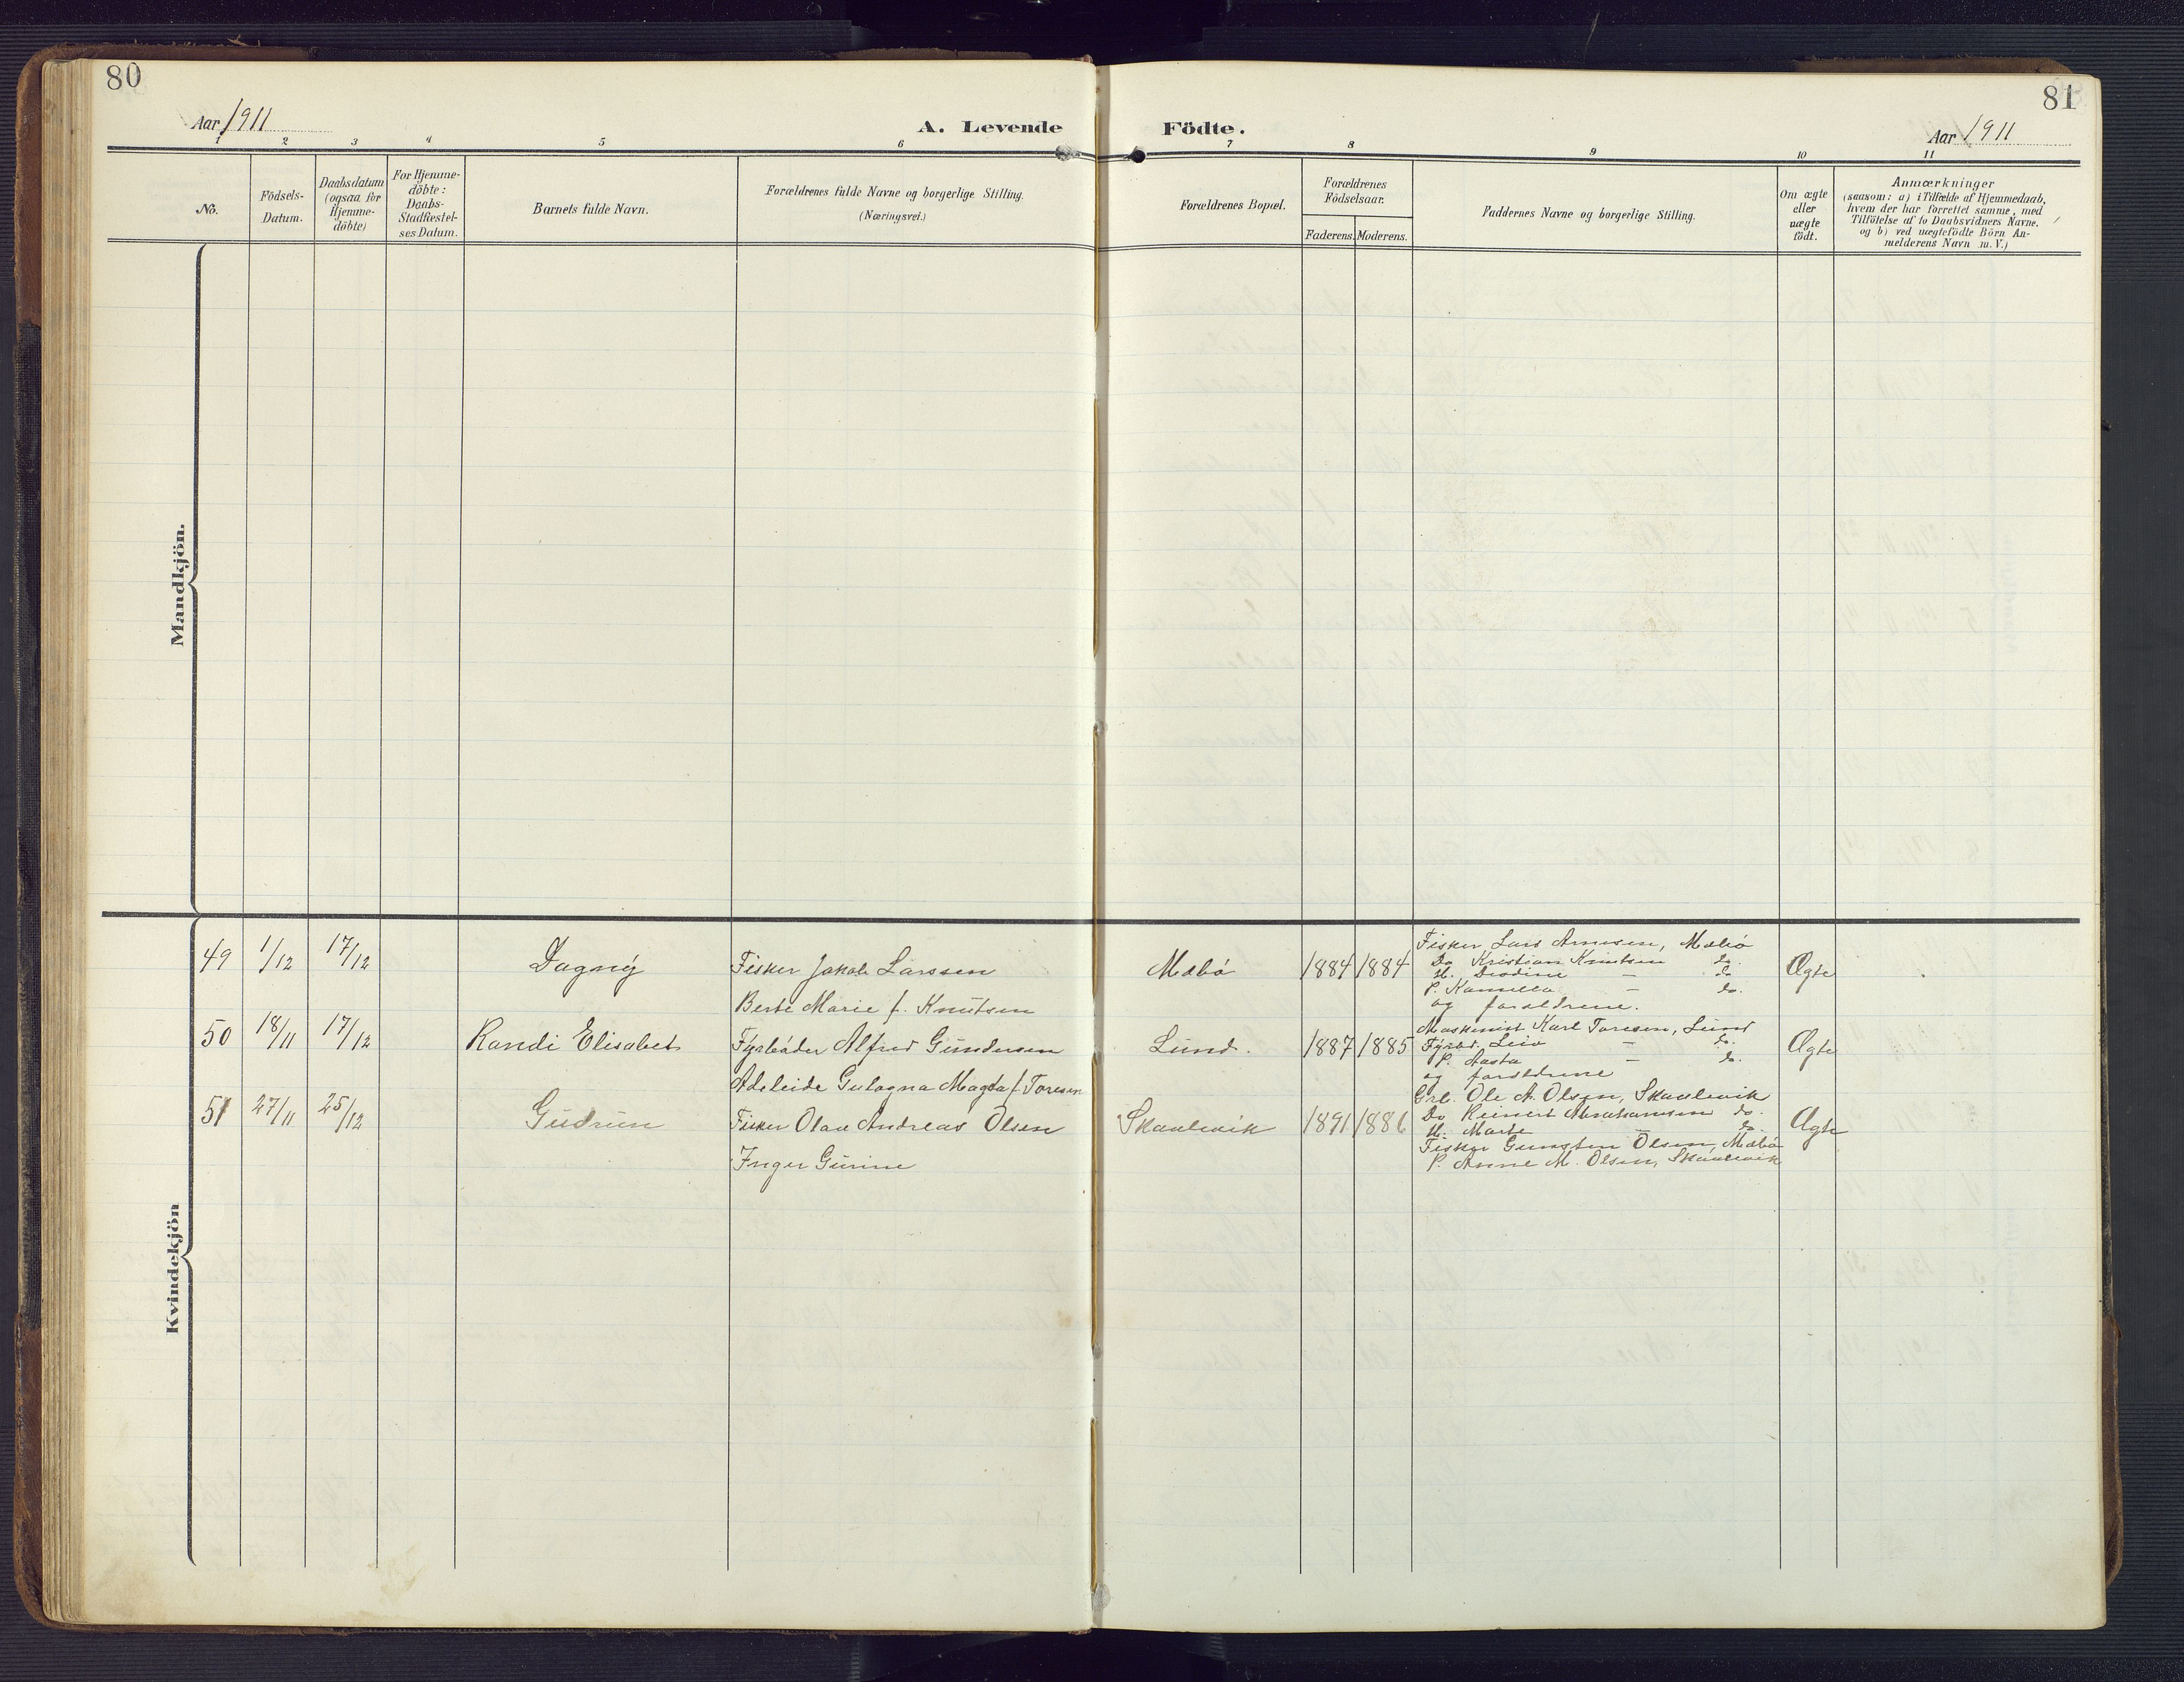 80
81
Aar 1911
A. Levende Födte.
Aar 1911
1 2 3 4 5 6 7 8 9 10 11
No.
Födsels-
Datum.
Daabsdatum
(ogsaa for
Hjemme-
döbte)
For Hjemme-
döbte:
Daabs-
Stadfestel-
ses Datum.
Barnets fulde Navn.
Forældrenes fulde Navne og borgerlige Stilling.
(Næringsvei.)
Forældrenes Bopæl.
Forældrenes
Födselsaar.
Faderens. Moderens.
Faddernes Navne og borgerlige Stilling.
Om ægte
eller
uægte
födt.
Anmærkninger
(saasom: a) i Tilfælde af Hjemmedaab,
hvem der har forrettet samme, med
Tilföielse af to Daabsvidners Navne.
og b) ved uægtefödte Börn An-
melderens Navn m. V.)
Mandkjön.
Kvindekjön
49 1/12 17/12 Dagny
Fisker Jakob Larssen
Berte Marie f. Knutsen
Mæbø 1884 1884
Fisker Lars Arnesen, Mæbø
Do Kristian Knutsen do.
H. – do
P. Kamilla – do.
og forældrene.
Ægte
50 18/11 17/12 Randi Elisabet
Fyrbøder Alfred Gundersen
Adeleide Gulagna Magda f. Toresen
Lund. 1887 1885
Maskinist Karl Toresen, Lund
Fyrbd. – do.
P. Aasta – do.
og forældrene
Ægte
51 27/11 25/12 Gudrun
Fisker Olav Andreas Olsen
Inger Gurine
Skaalevik 1891 1886
Grb. Ole A. Olsen, Skaalevik
Do Reinert Abrahamsen do.
H. Marte – do.
Fisker Gunsten Olsen, Mæbø
P. Anne M. Olsen, Skaalevik
Ægte